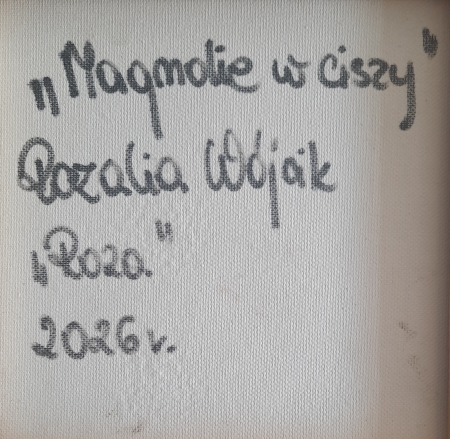 „Magnolie w ciszy"
Rozalia Wójcik
„Roza"
2026 r.